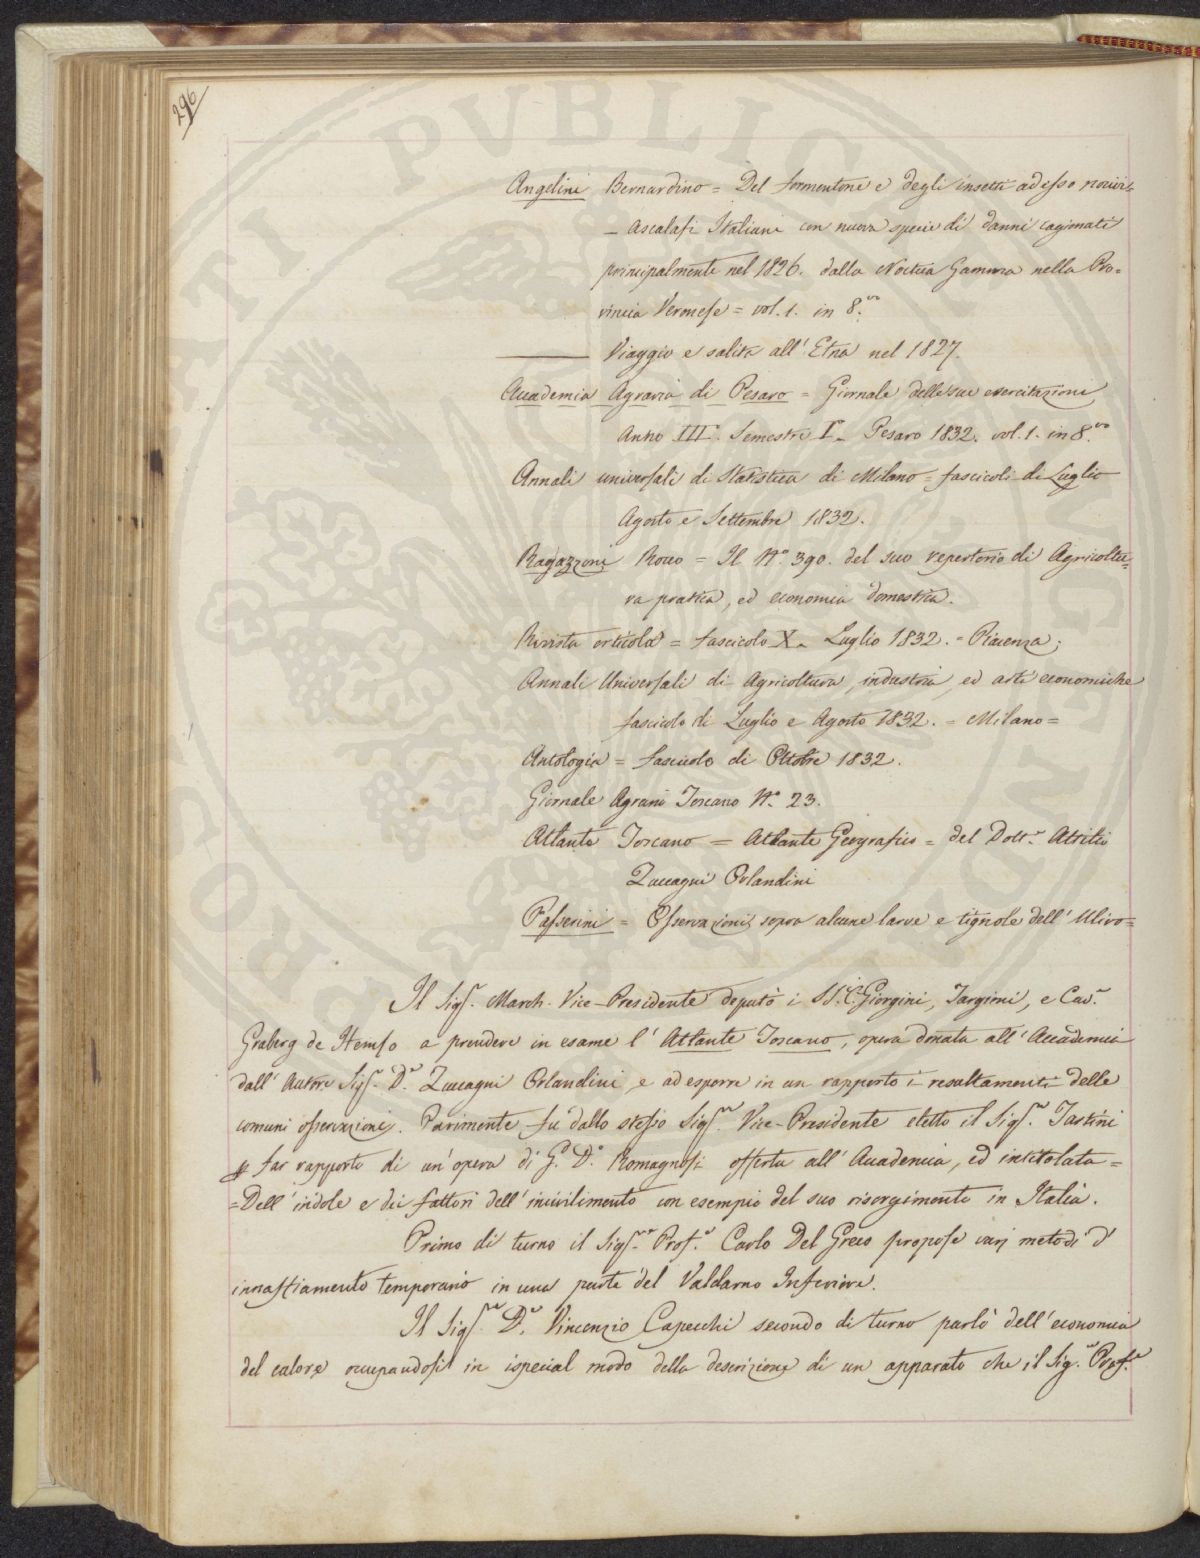 296
Angelini Bernardino = Del formentone e degli insetti ad esso nocivi =
– Ascalafi Italiani con nuova specie di danni cagionati
principalmente nel 1826. dalla Noctua Gamma nella Pro=
vincia Veronese = vol. 1. in 8.vo
Viaggio e salita all' Etna nel 1827.
Accademia Agraria di Pesaro = Giornale delle sue esercitazioni
Anno III°. Semestre I°. Pesaro 1832. vol. 1. in 8.vo
Annali universali di Statistica di Milano = fascicoli di Luglio
Agosto e Settembre 1832.
Ragazzoni Rocco = Il N.° 390. del suo repertorio di Agricoltu=
ra pratica, ed economia domestica.
Rivista orticola = fascicolo X. Luglio 1832. = Piacenza;
Annali Universali di Agricoltura, industria, ed arti economiche
fascicolo di Luglio e Agosto 1832. = Milano =
Antologia = fascicolo di Ottobre 1832.
Giornale Agrario Toscano N.° 23.
Atlante Toscano = Atlante Geografico = del Dott.r Attilio
Zuccagni Orlandini
Passerini = Osservazioni sopra alcune larve e tignole dell' Ulivo =
Il Sig.r March. Vice-Presidente deputò i SS. C. Giorgini, Targioni, e Cav.r
Graberg de Hemso a prendere in esame l' Atlante Toscano, opera donata all' Accademia
dall' Autore Sig.r D.r Zuccagni Orlandini, e ad esporre in un rapporto i resultamenti delle
comuni osservazioni. Parimente fu dallo stesso Sig.r Vice-Presidente eletto il Sig.r Tartini
p far rapporto di un' opera di G. D.° Romagnosi offerta all' Accademia, ed intitolata =
= Dell' indole e dei fattori dell' incivilimento con esempio del suo risorgimento in Italia.
Primo di turno il Sig.r Prof.r Carlo Del Greco propose varj metodi d'
innaffiamento temporario in una parte del Valdarno Inferiore.
Il Sig.r D.r Vincenzio Capecchi secondo di turno parlò dell' economia
del calore occupandosi in ispecial modo della descrizione di un apparato che il Sig.r Prof.r